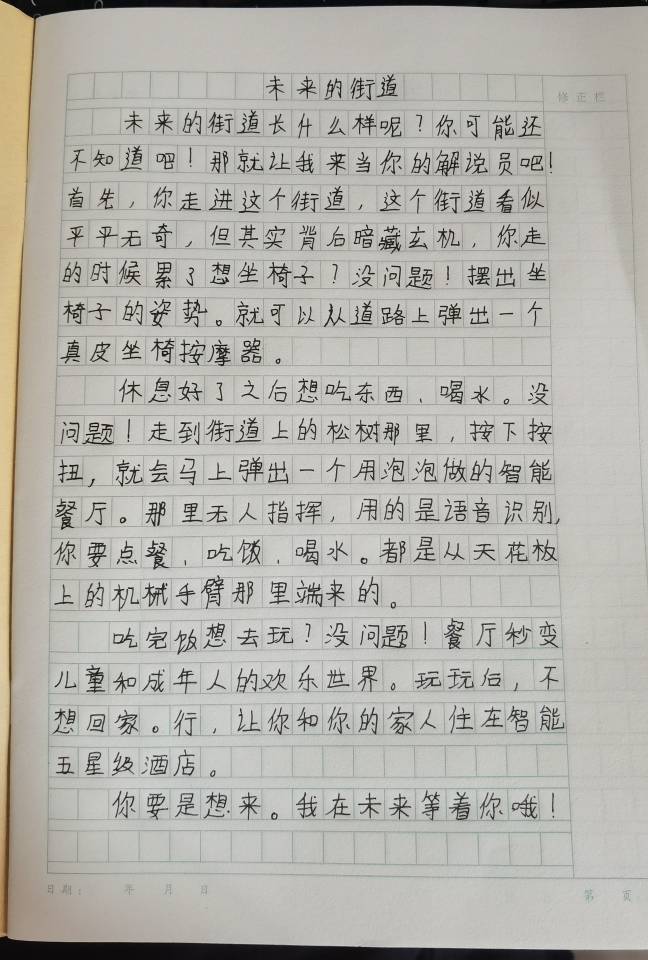 未来的街道
修正栏
未来的街道长什么样呢？你可能还
不知道吧！那就让我来当你的解说员吧！
首先，你走进这个街道，这个街道看似
平平无奇，但其实背后暗藏玄机，你走
的时候累了想坐椅子？没问题！摆出坐
椅子的姿势。就可以从道路上弹出一个
真皮坐椅按摩器。
休息好了之后想吃东西、喝水。没
问题！走到街道上的松树那里，按下按
扭，就会马上弹出一个用泡泡做的智能
餐厅。那里无人指挥，用的是语音识别，
你要点餐、吃饭、喝水。都是从天花板
上的机械手臂那里端来的。
吃完饭想去玩？没问题！餐厅秒变
儿童和成年人的欢乐世界。玩玩后，不
想回家。行，让你和你的家人住在智能
五星级酒店。
你要是想来。我在未来等着你哦！
日期： 年 月 日
第 页